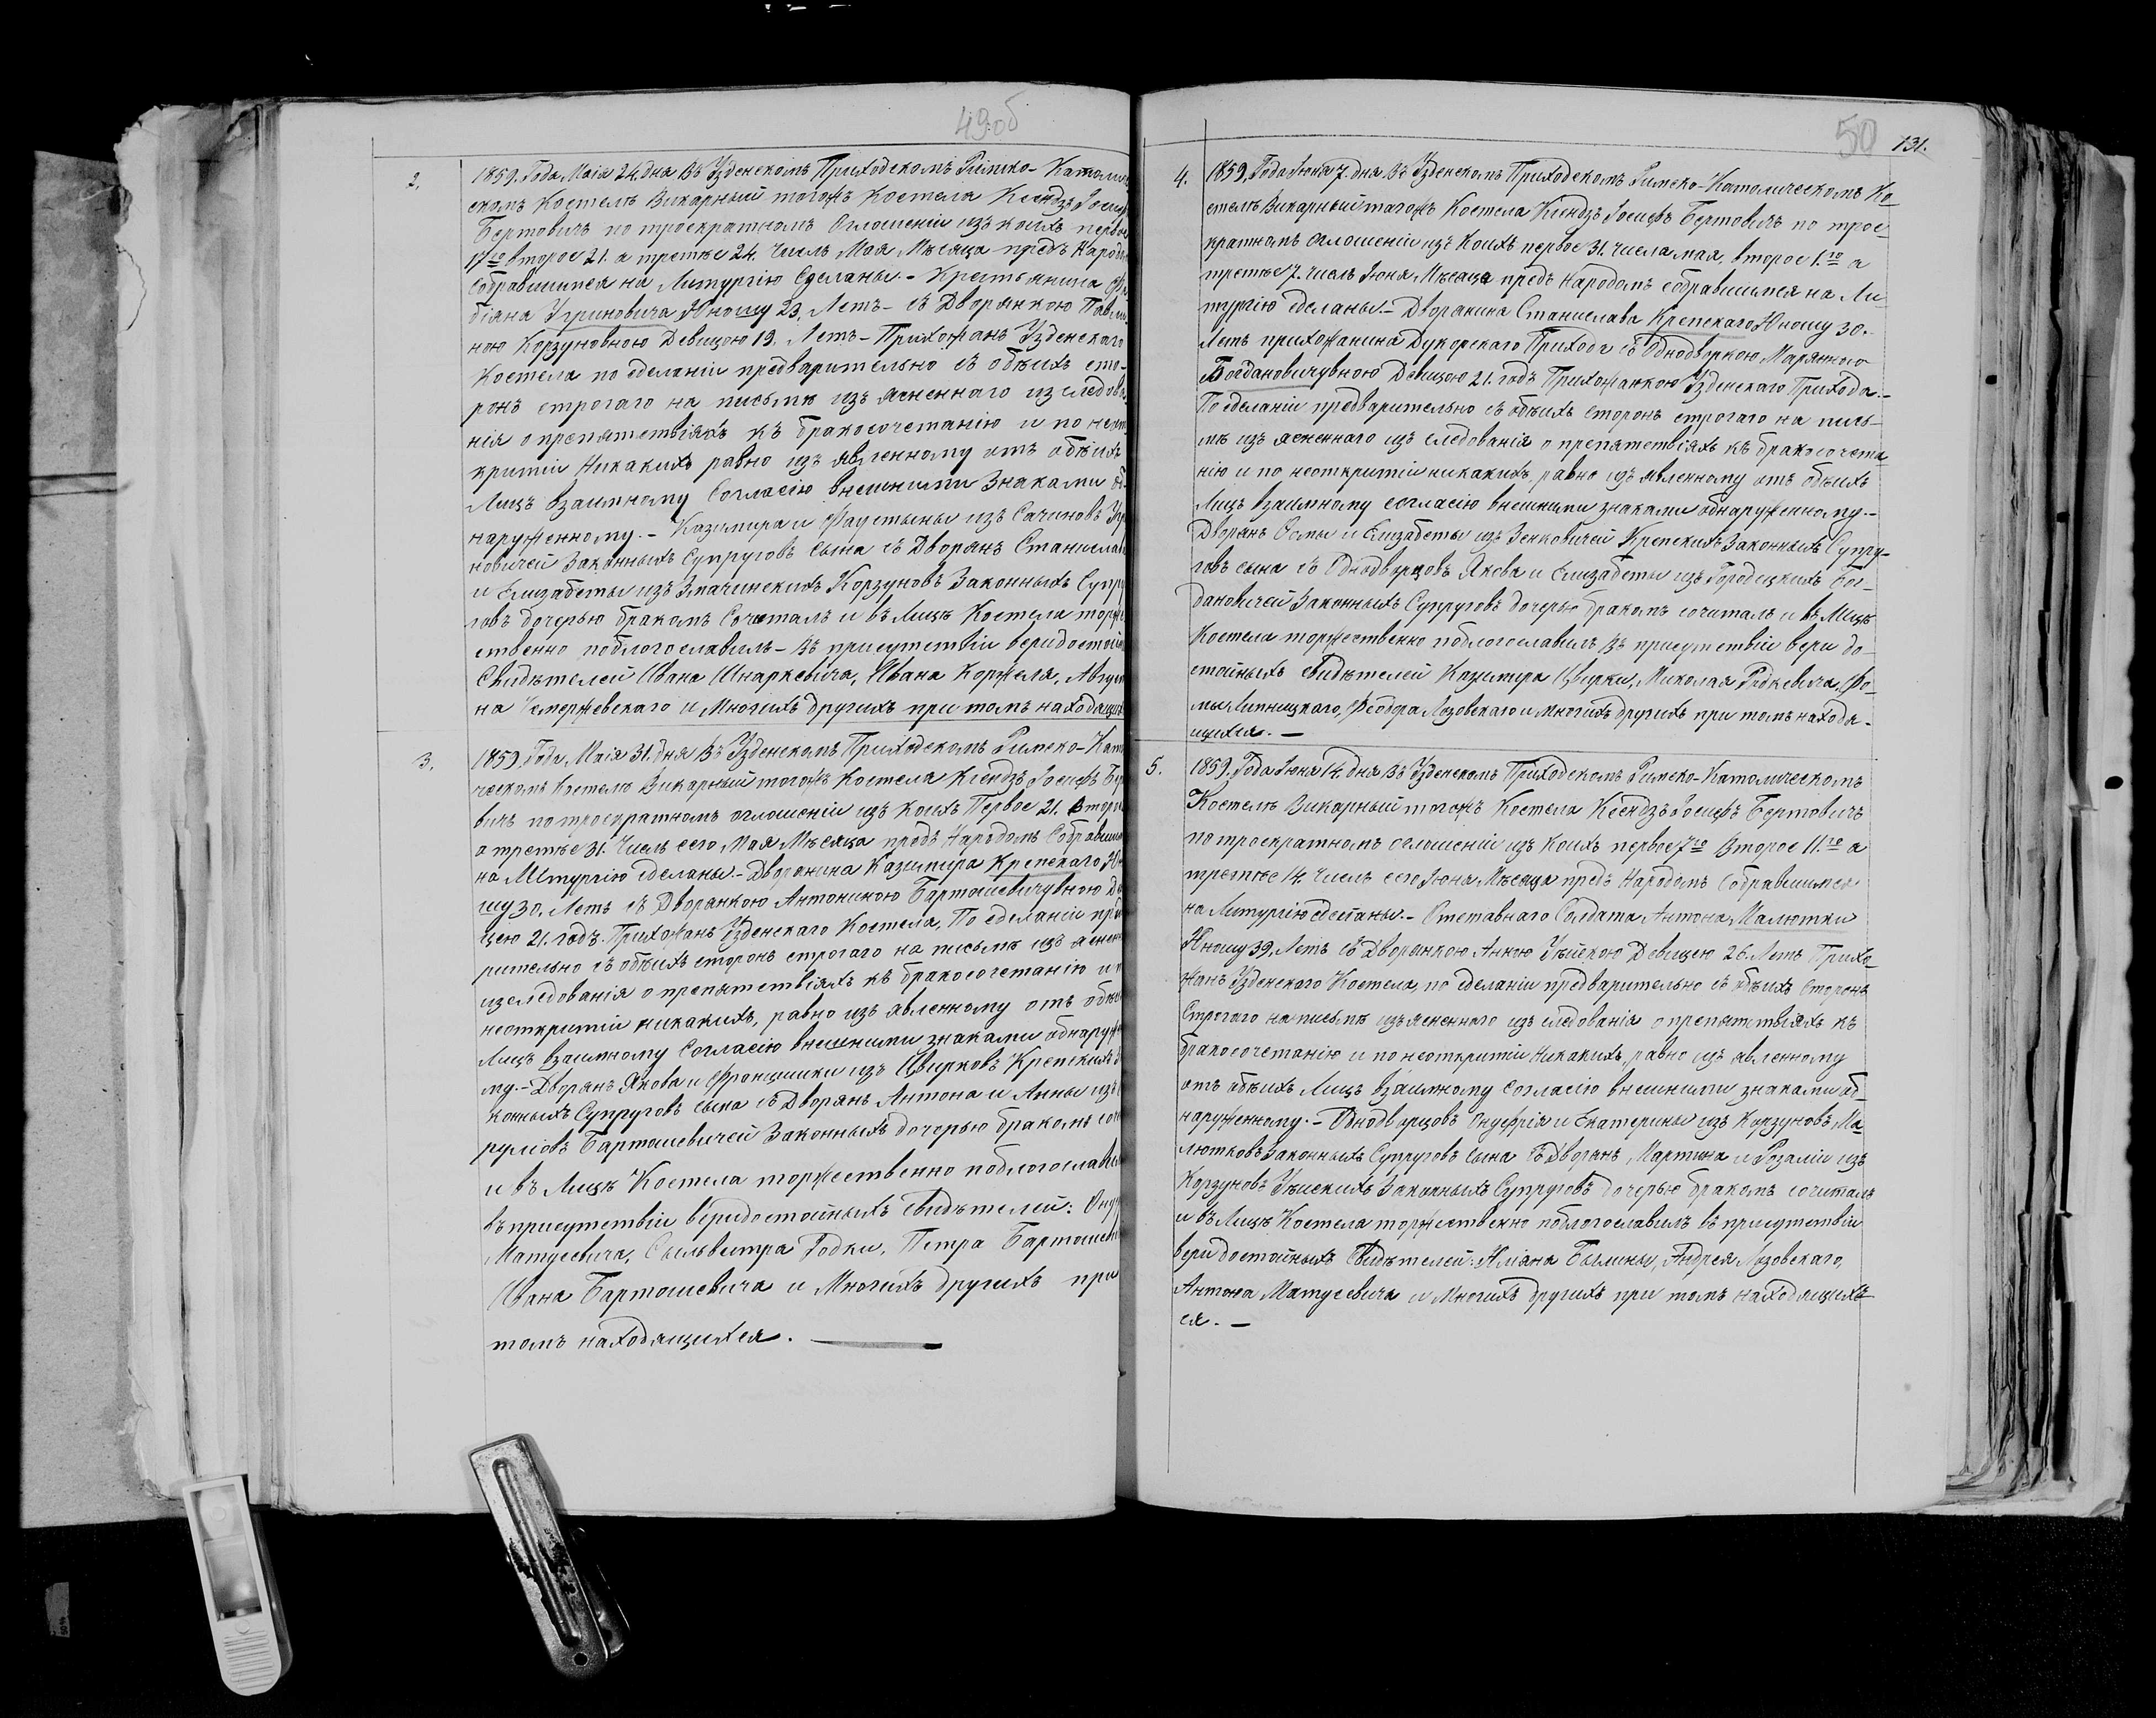 49об
2.
1859. Года Маія 24. дня Въ Узденскомъ Приходскомъ Римско-Катол
скомъ Костелѣ Викарный тогожъ Костела Ксендзъ Іоси
Бертовичъ по троекратномъ Оглошеніи изъ коихъ перво
17го второе 21. а третье 24. Числъ Мая Мѣсяца предъ Народ
Собравшимся на Литургію Сделаны. – Крестьянина
біяна Угриновича Юношу 23. Летъ – съ Дворянкою Павли
ною Корзуновною Девицою 19. Летъ – Прихожанъ Узденскаго
Костела по сделаніи предварительно съ обѣихъ сто-
ронъ строгаго на письмѣ изъ ясненнаго изследова
нія о препятствіяхъ къ бракосочетанію и по неот
критіи Никакихъ равно изъ явленному отъ обѣихъ
Лицъ Взаимному Согласію внешними Знаками об
наруженному. – Казимира и Фаустыны изъ Сачиновъ Уг
новичей Законныхъ Супруговъ сына съ Дворянъ Станислав
и Елизабеты изъ Змачинскихъ Корзуновъ Законныхъ Супру
говъ дочерью бракомъ Сочеталъ и въ Лицѣ Костела торже
ственно поблогославилъ – Въ присутствіи веридостой
Свидѣтелей Ивана Шнаркевича, Ивана Коржела, Авгус
на Чемержевскаго и Многихъ другихъ при томъ находящих
3.
1859. Года Маія 31. дня Въ Узденскомъ Приходскомъ Римско-Кат
ческомъ Костелѣ Викарный тогожъ Костела Ксендзъ Іосифъ Бер
вичъ по троекратномъ оглошеніи изъ коихъ Первое 21. втор
а третье 31. Числъ сего Мая Мѣсяца предъ Народомъ Собравши
на Литургію сделаны. – Дворянина Казимира Крепскаго Ю
шу 30. Летъ съ Дворянкою Антониною Бартошевичувною Де
цею 21. годъ. Прихожанъ Узденскаго Костела, По сделаніи пред
рительно съ обѣихъ сторонъ строгаго на письмѣ изъ яснен
изследованія о препятствіяхъ къ бракосочетанію и п
неоткритіи никакихъ, равно изъ явленному отъ обѣи
Лицъ взаимному Согласію внешними знаками обнаруж
му. – Дворянъ Якова и Францишки изъ Цвирковъ Крепскихъ
конныхъ Супруговъ сына съ Дворянъ Антона и Анны изъ
румовъ Бартошевичей Законныхъ дочерью бракомъ соч
и въ Лицѣ Костела торжественно поблогослави
въ присутствіи веридостойныхъ свидѣтелей: Ону
Матусевича, Сыльвестра Родки, Петра Бартошев
Ивана Бартошевича и Многихъ другихъ при
томъ находящихся. —
50 131.
4.
1859. Года Іюня 7. дня Въ Узденскомъ Приходскомъ Римско-Католическомъ Ко-
стелѣ Викарный тогожъ Костела Ксендзъ Іосифъ Бертовичъ по трое-
кратномъ оглошеніи изъ Коихъ первое 31. числа мая, второе 1.го а
третье 7. числъ Іюня Мѣсяца предъ Народомъ собравшимся на Ли
тургію сделаны. – Дворянина Станислава Крепскаго Юношу 30.
Летъ прихожанина Дукорскаго Прихода съ Однодворкою Марянною
Богдановичувною Девицою 21. годъ Прихожанкою Узденскаго Прихода. –
По сделаніи предварительно съ обѣихъ сторонъ строгаго на пись-
мѣ изъ ясненнаго изъ следованія о препятствіяхъ къ бракосочета
нію и по неоткритіи никакихъ, равно изъ явленному отъ обѣихъ
Лицъ взаимному согласію внешними знаками обнаруженному. –
Дворянъ Фомы и Елизабеты изъ Зенковичей Крепскихъ Законныхъ Супру-
говъ сына съ Однодворцовъ Якова и Елизабеты изъ Городецкихъ Бог-
дановичей Законныхъ Супруговъ дочерью бракомъ сочиталъ и въ Лицѣ
Костела торжественно поблогославилъ въ присутствіи вери до-
стойныхъ свидѣтелей Казимира Цвирки, Миколая Родкевича, Фо-
мы Липницкаго, Феодора Лозовскаго и многихъ другихъ при томъ находя-
щихся. —
5.
1859. Года Іюня 14. дня Въ Узденскомъ Приходскомъ Римско-Католическомъ
Костелѣ Викарный тогожъ Костела Ксендзъ Іосифъ Бертовичъ
по троекратномъ оглошеніи изъ Коихъ первое 7го Второе 11.го а
третье 14. числъ сего Іюня Мѣсяца предъ Народомъ Собравшимся
на Литургію сделаны. – Отставнаго Солдата Антона Малютки
Юношу 39. Летъ съ Дворянкою Анною Уѣйскою Девицею 26. Летъ Прихо-
жанъ Узденскаго Костела, по сделаніи предварительно съ обѣихъ Сторонъ
Строгаго на письмѣ изъ ясненнаго изъ следованія о препятствіяхъ къ
бракосочетанію и по неоткритіи Никакихъ, равно изъ явленному
отъ обѣихъ Лицъ взаимному согласію внешними знаками об-
наруженному. – Однодворцовъ Онуфрія и Екатерины изъ Корзуновъ Ма-
лютковъ Законныхъ Супруговъ Сына съ Дворянъ Мартина и Розаліи изъ
Корзуновъ Уѣйскихъ Законныхъ Супруговъ дочерью бракомъ сочиталъ
и въ Лицѣ Костела торжественно поблогославилъ въ присутствіи
вери достойныхъ Свидѣтелей: Андрея Лозовскаго,
Антона Матусевича и Многихъ другихъ при томъ находящихъ
ся. —